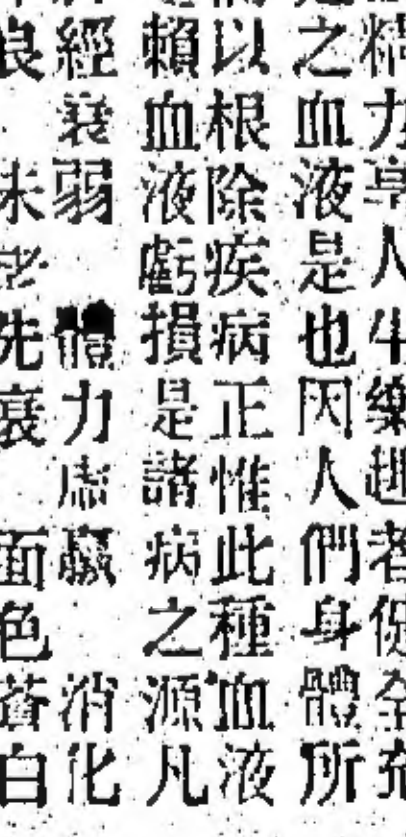 精力享人生樂趣者全
之血液是也因人們身體所
以根除疾病正惟此種血液
賴血液虧損是諸病之源凡
經衰弱 體力虛羸 消化
良 未老先衰 面色蒼白